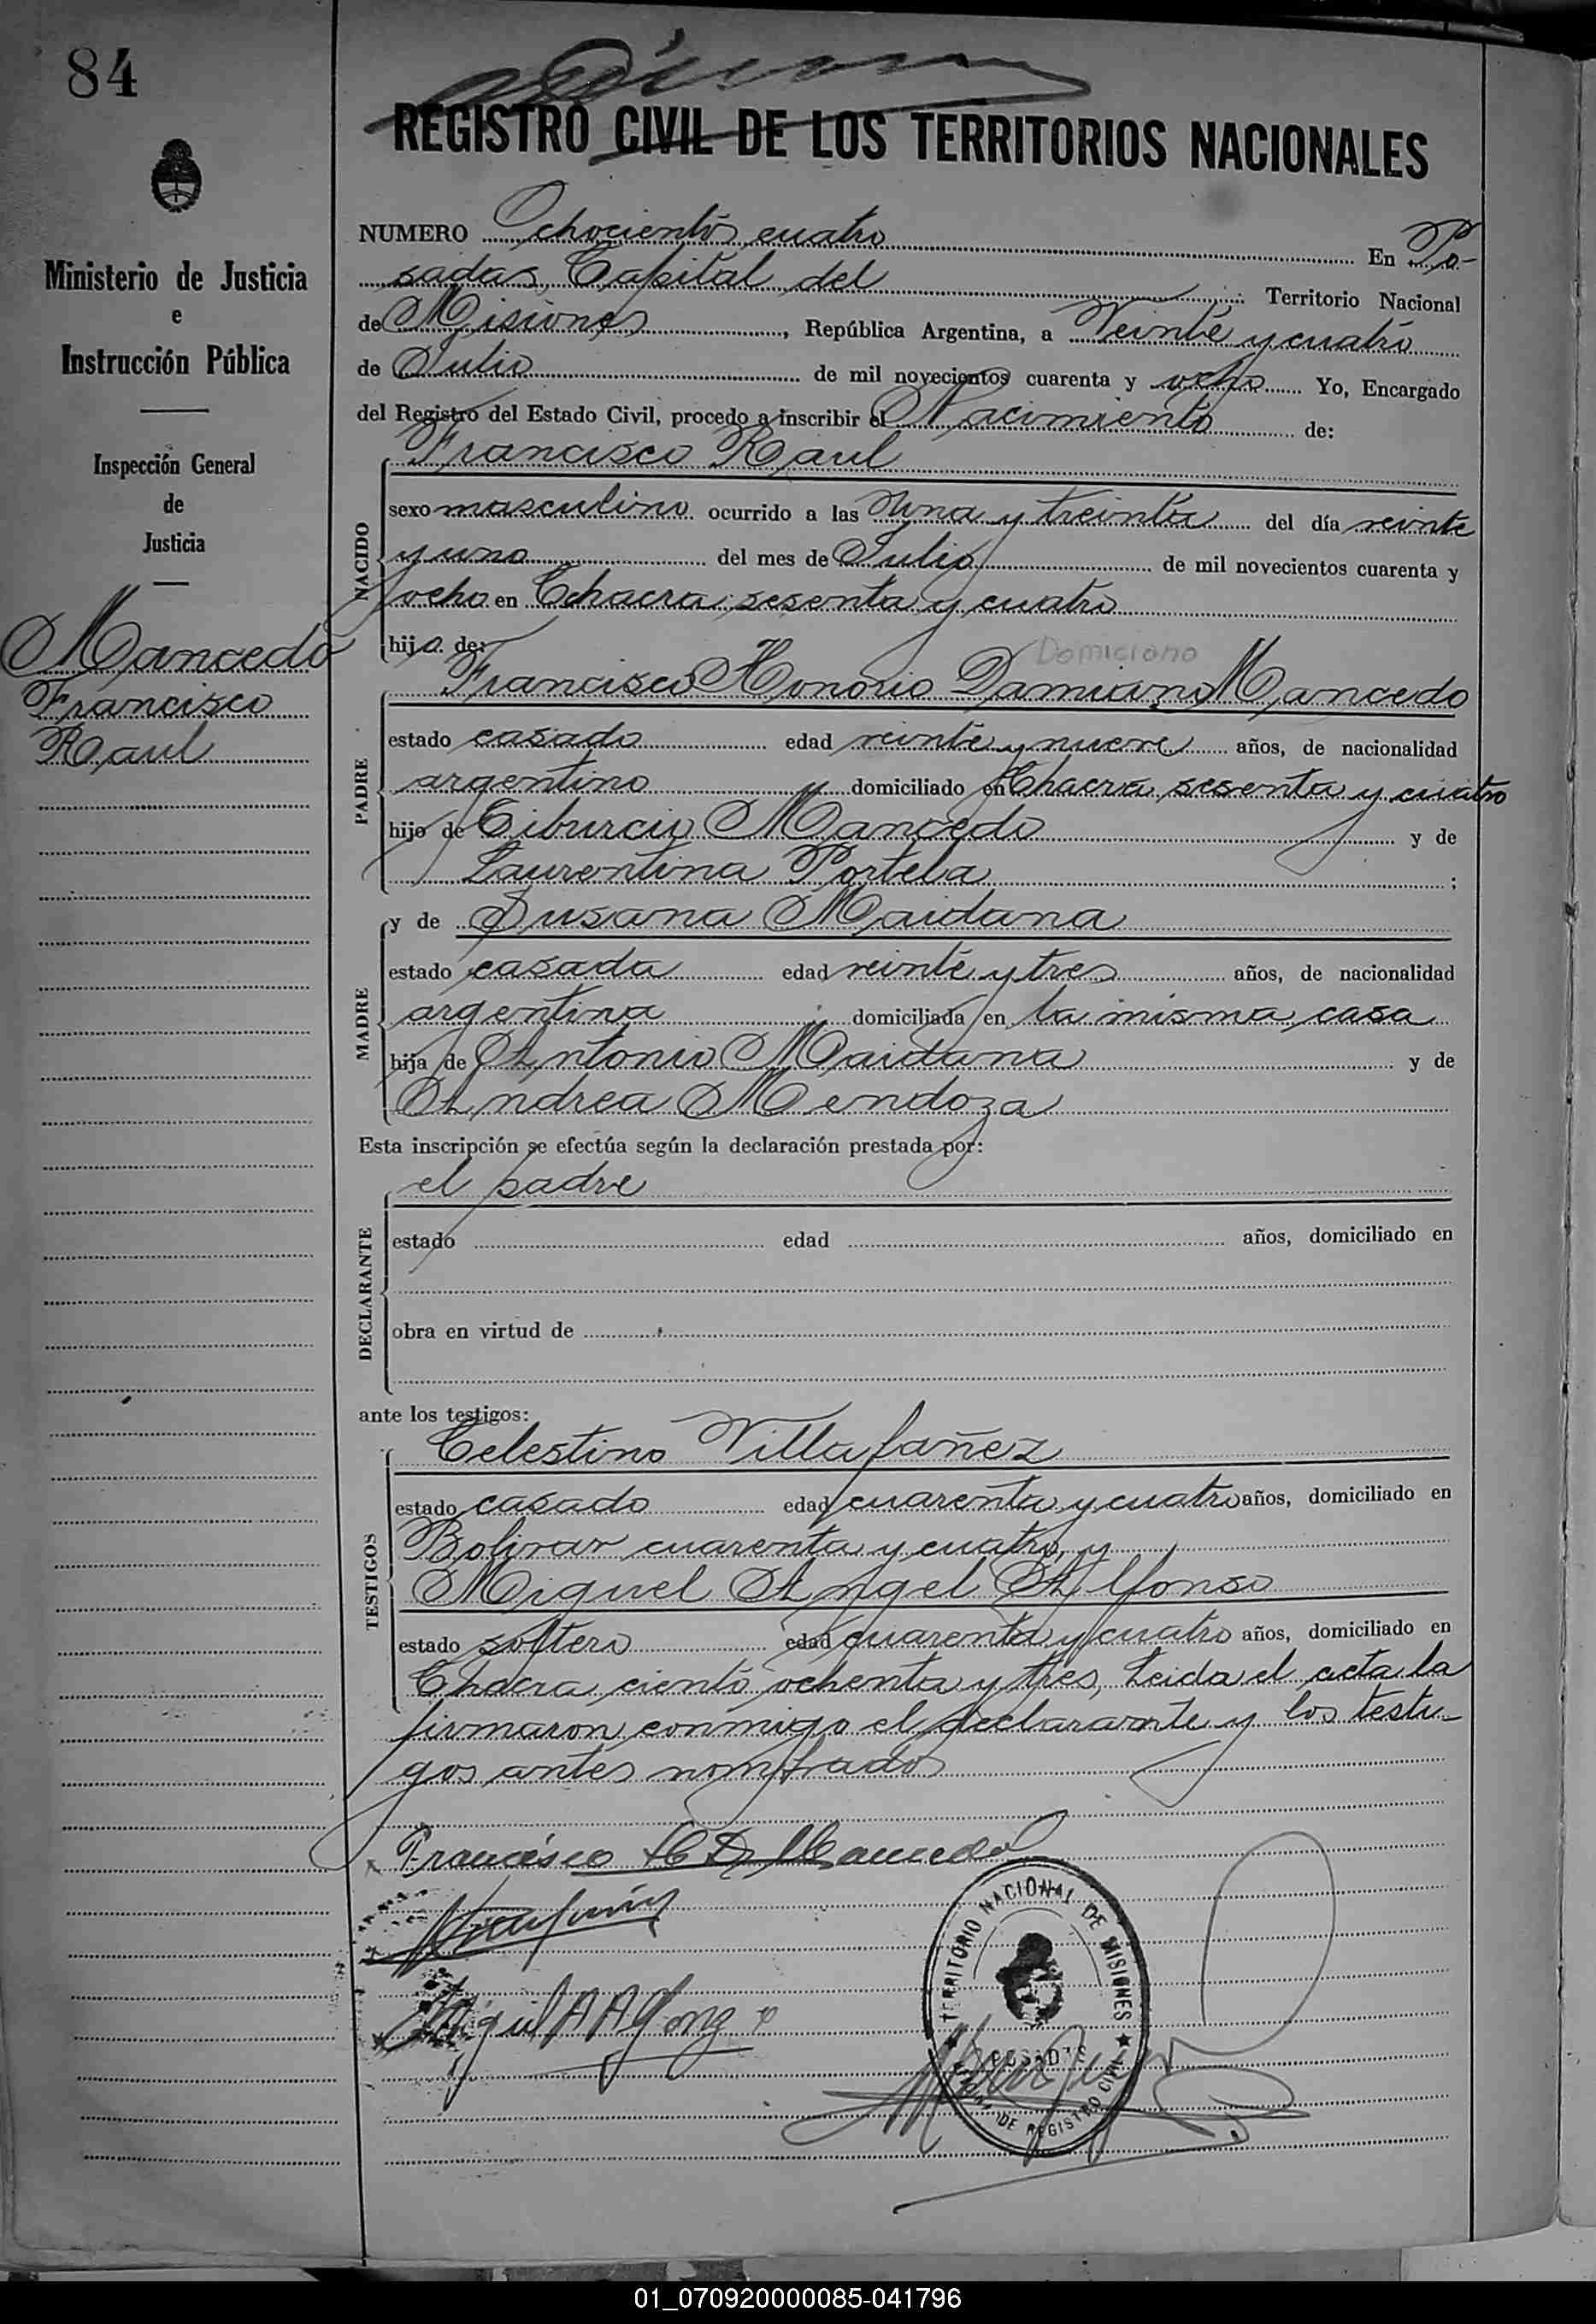 84
REGISTRO CIVIL DE LOS TERRITORIOS NACIONALES
Ministerio de Justicia
e
Instrucción Pública
Inspección General
de
Justicia
Mancedo
Francisco
Raul
NUMERO Ochocientos cuatro En Po-
sadas, Capital del Territorio Nacional
de Misiones, República Argentina, a Veinte y cuatro
de Julio de mil novecientos cuarenta y ocho Yo, Encargado
del Registro del Estado Civil, procedo a inscribir el Nacimiento de:
NACIDO
Francisco Raul
sexo masculino ocurrido a las Una y treinta del día veinte
y uno del mes de Julio de mil novecientos cuarenta y
ocho en Chacra sesenta y cuatro
hijo de:
Domiciano
PADRE
Francisco Honorio Damiano Mancedo
estado casado edad veinte y nueve años, de nacionalidad
argentino domiciliado en Chacra sesenta y cuatro
hijo de Tiburcio Mancedo y de
Laurentina Portela ;
MADRE
y de Susana Maidana
estado casada edad veinte y tres años, de nacionalidad
argentina domiciliada en la misma casa
hija de Antonio Maidana y de
Andrea Mendoza
Esta inscripción se efectúa según la declaración prestada por:
DECLARANTE
el padre
estado edad años, domiciliado en
obra en virtud de
ante los testigos:
TESTIGOS
Celestino Villafañez
estado casado edad cuarenta y cuatro años, domiciliado en
Bolivar cuarenta y cuatro, y
Miguel Angel Alfonso
estado soltero edad cuarenta y cuatro años, domiciliado en
Chacra ciento ochenta y tres, Leida el acta la
firmaron conmigo el declarante y los testi-
gos antes nombrados
Francisco H D Mancedo
TERRITORIO NACIONAL DE MISIONES
POSADAS
DE REGISTRO CIVIL
01_070920000085-041796